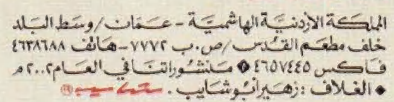 المملكة الأردنية الهاشمية - عمان / وسط البلد
خلف مطعم القدس / ص.ب ٧٧٧٢ - هاتف ٤٦٣٨٦٨٨
فاكس ٤٦٥٧٤٤٥ منشوراتنا في العام ٢٠٠٢ م
الغلاف : زهير أبو شايب .